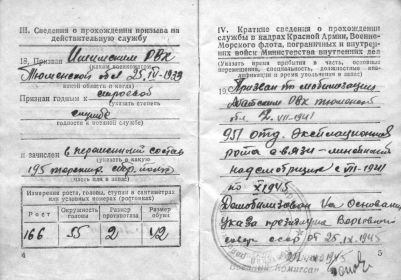 III. Сведения о прохождении призыва на
действительную службу
18. Призван Ишимским РВК
(каким военкоматом,
Тюменской обл 25.IV-1939
какой области и когда)
Признан годным к строевой
(указать степень
службе
годности к военной службе)
и зачислен в переменный состав
(указать в какую
195
часть или в запас)
Измерения роста, головы, ступни в сантиметрах
или условных номерах (ростовках)
Рост
Окружность головы
Размер противогаза
Размер обуви
166 55 2 42
4
IV. Краткие сведения о прохождении
службы в кадрах Красной Армии, Военно-
Морского флота, пограничных и внутрен-
них войск Министерства внутренних дел
(Указать время прибытия в часть, основные
и время увольнения в запас)
19. Призван по мобилизации
РВК тюменской
обл 7.VII-1941
951 отд. эксплоационная
рота связи - линейный
надсмотрщик с VIII-1941
по X 1945
Демобилизован на основании
указа президиума Верховного
совет ссср от 25.IX-1945
1945
5
Военный комиссар